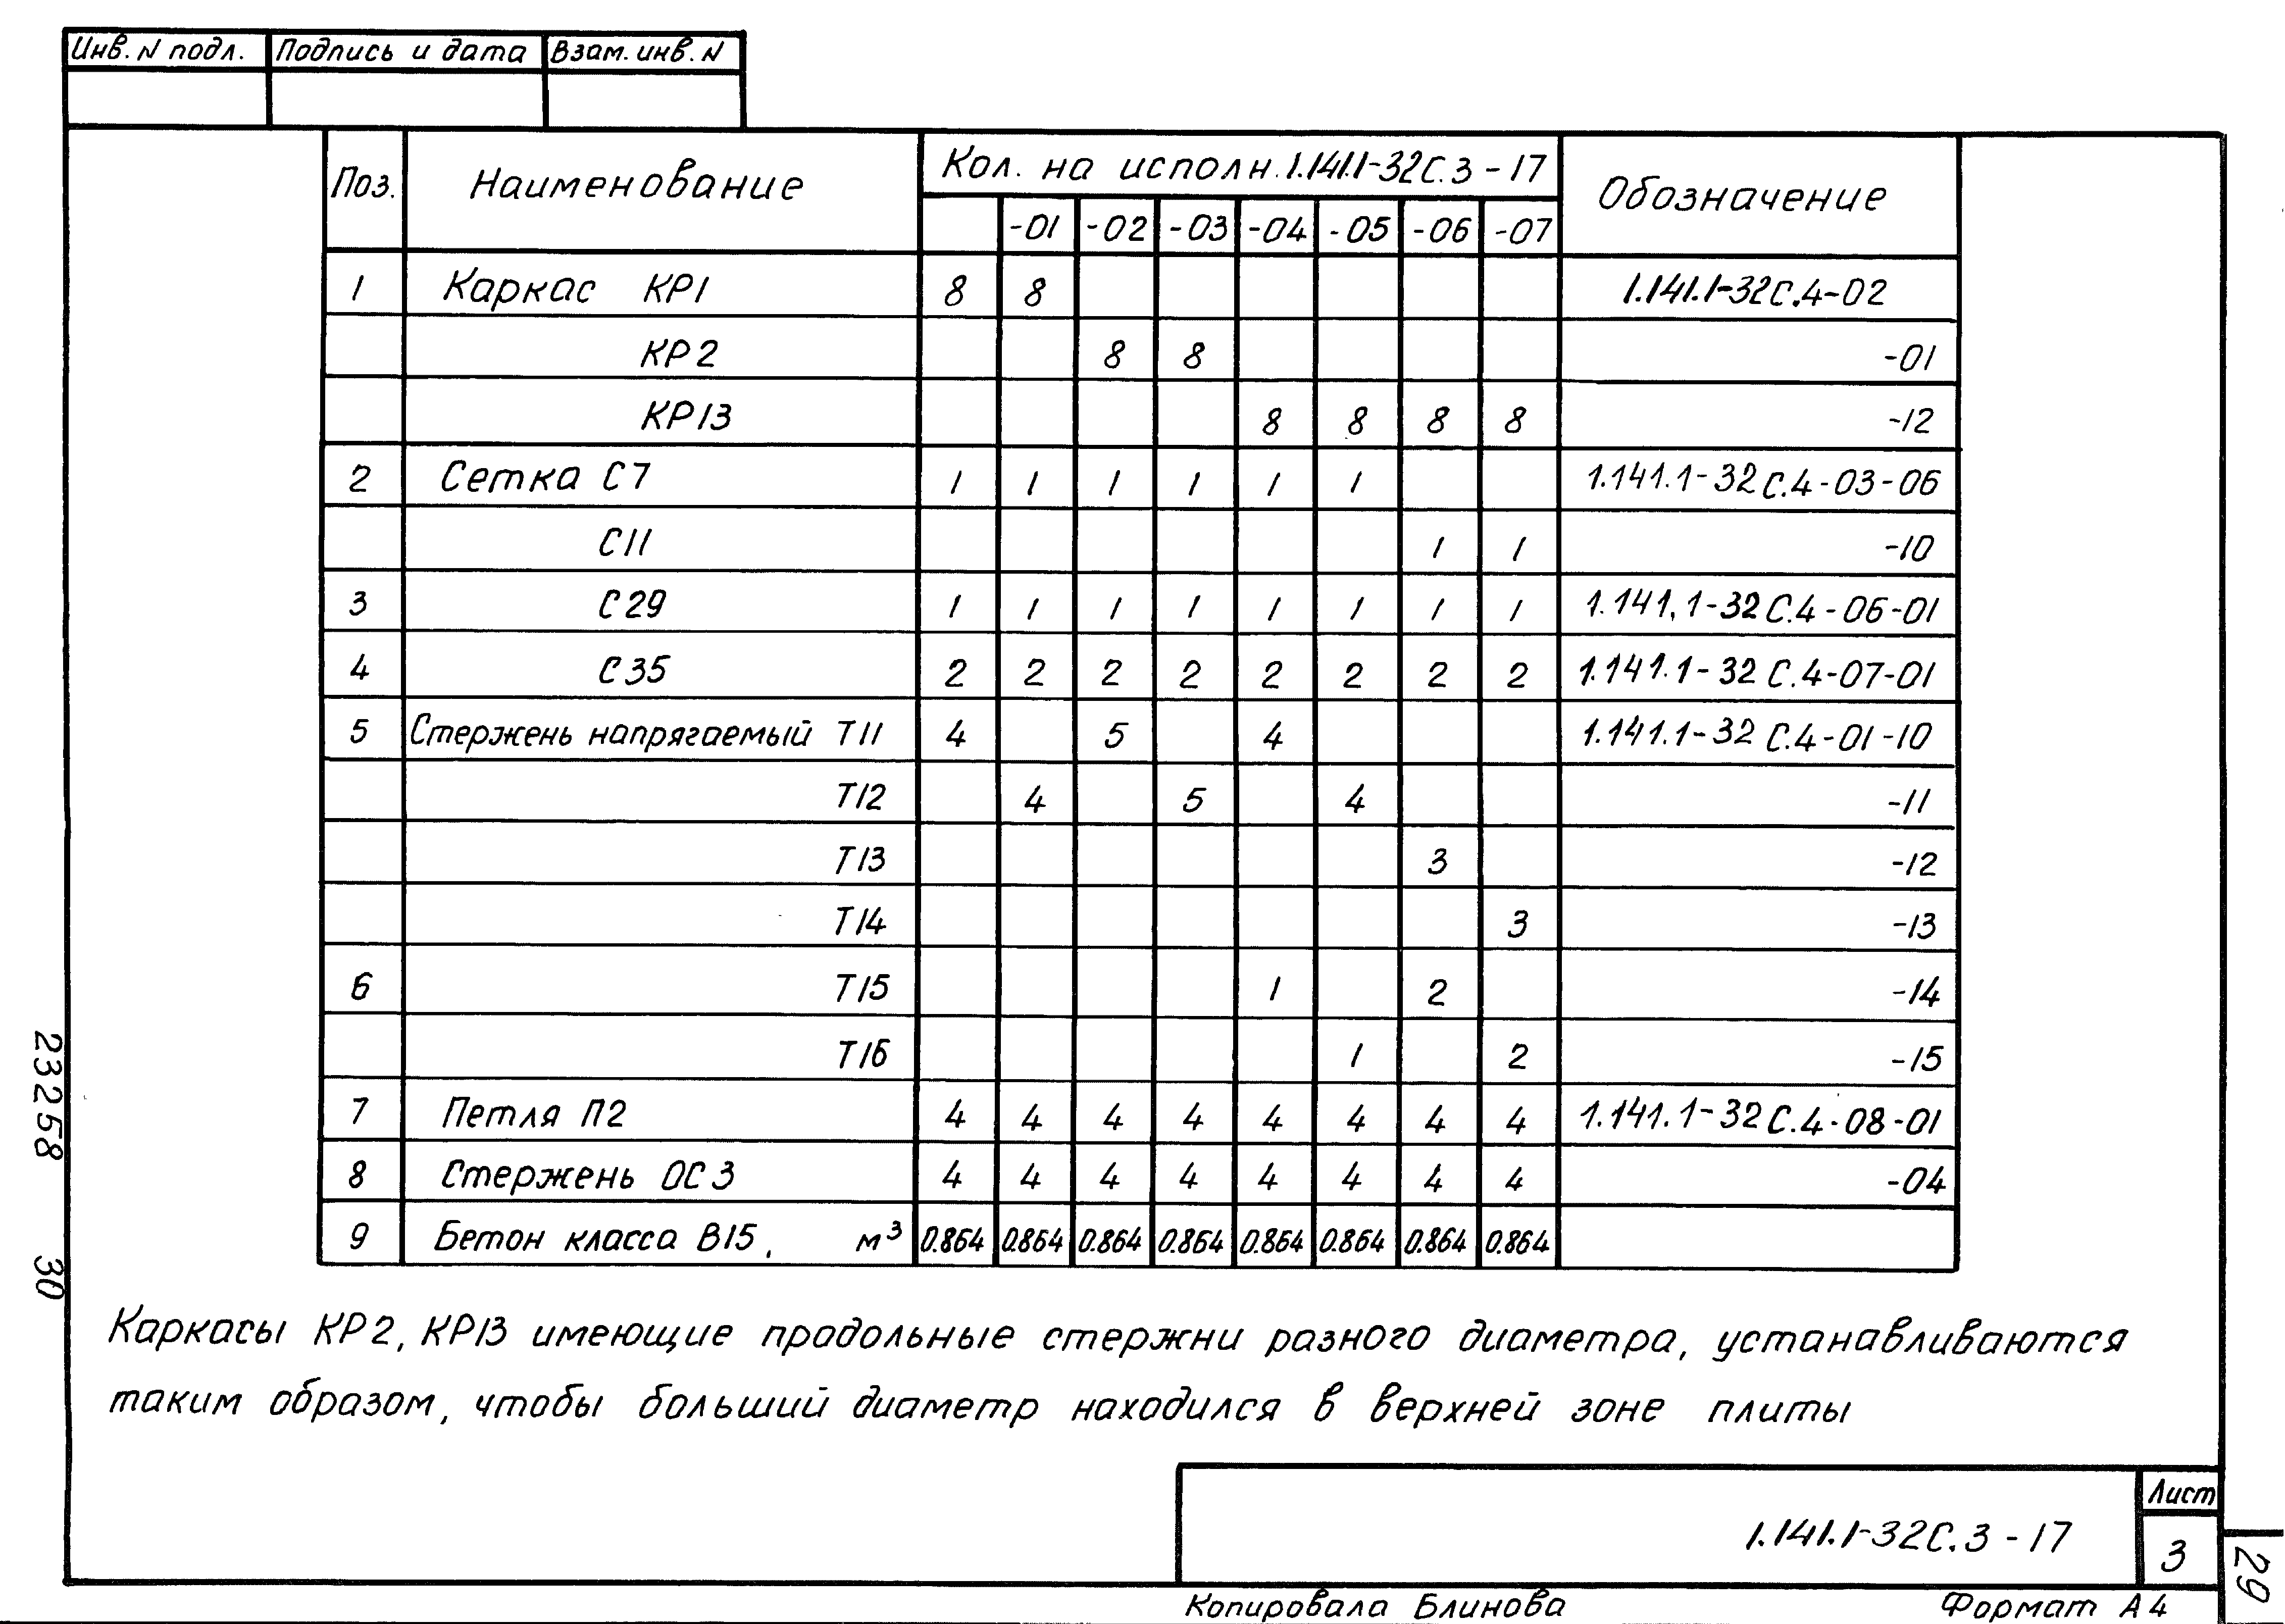 Инв. N подл. Подпись и дата Взам. инв. N
Поз. Наименование Кол. на исполн. 1.141.1-32С.3-17 Обозначение
-01 -02 -03 -04 -05 -06 -07
1 Каркас КР1 8 8 1.141.1-32С.4-02
КР2 8 8 -01
КР13 8 8 8 8 -12
2 Сетка С7 1 1 1 1 1 1 1.141.1-32С.4-03-06
С11 1 1 -10
3 С29 1 1 1 1 1 1 1 1 1.141.1-32С.4-06-01
4 С35 2 2 2 2 2 2 2 2 1.141.1-32С.4-07-01
5 Стержень напрягаемый Т11 4 5 4 1.141.1-32С.4-01-10
Т12 4 5 4 -11
Т13 3 -12
Т14 3 -13
6 Т15 1 2 -14
Т16 1 2 -15
7 Петля П2 4 4 4 4 4 4 4 4 1.141.1-32С.4-08-01
8 Стержень ОС3 4 4 4 4 4 4 4 4 -04
9 Бетон класса В15, м³ 0.864 0.864 0.864 0.864 0.864 0.864 0.864 0.864
Каркасы КР2, КР13 имеющие продольные стержни разного диаметра, устанавливаются
таким образом, чтобы больший диаметр находился в верхней зоне плиты
23258 30
1.141.1-32С.3-17
Лист
3
29
Копировала Блинова Формат А4